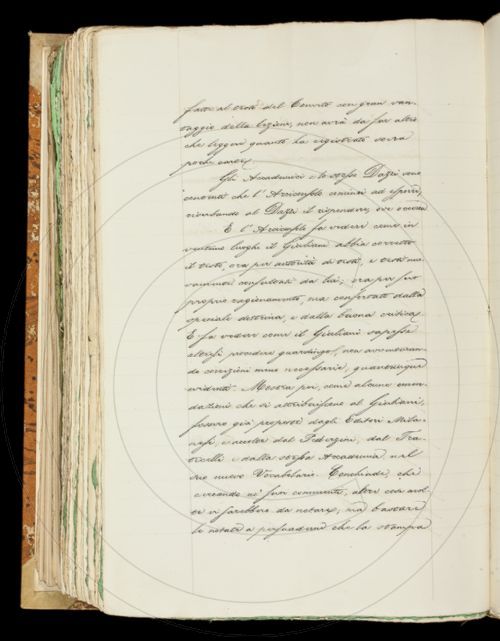 fatte al testo del Convito con gran van-
taggio della lezione, non avrà da far altro
che leggere quanto ha registrato verrà
poco cause.
Gli Accademici e lo stesso Dazzi con-
venendo che l'Arciconsolo cominci ad esporre,
riserbando al Dazzi il rispondere, ove occorra
E l'Arciconsolo fa vedere come in
ventuno luoghi il Giuliani abbia corretto
il testo, ora per autorità di testi, e testi no-
vamente consultati da lui; ora per suo
proprio ragionamento, ma confortato dalla
speciale dottrina, e dalla buona critica.
E fa vedere come il Giuliani sapesse
altresì procedere guardingo, non avventuran-
do correzioni meno necessarie, quantunque
evidenti. Mostra poi, come alcune emen-
dazioni che si attribuiscono al Giuliani,
fossero già proposte dagli Editori Mila-
nesi, e anche dal Pederzini, dal Fra-
ticelli e dalla stessa Accademia nel
suo nuovo Vocabolario. Conchiude, che
cercando ne' suoi commenti, altre cose mol-
te vi sarebbero da notare, ma bastare
le notate a persuadere che la stampa